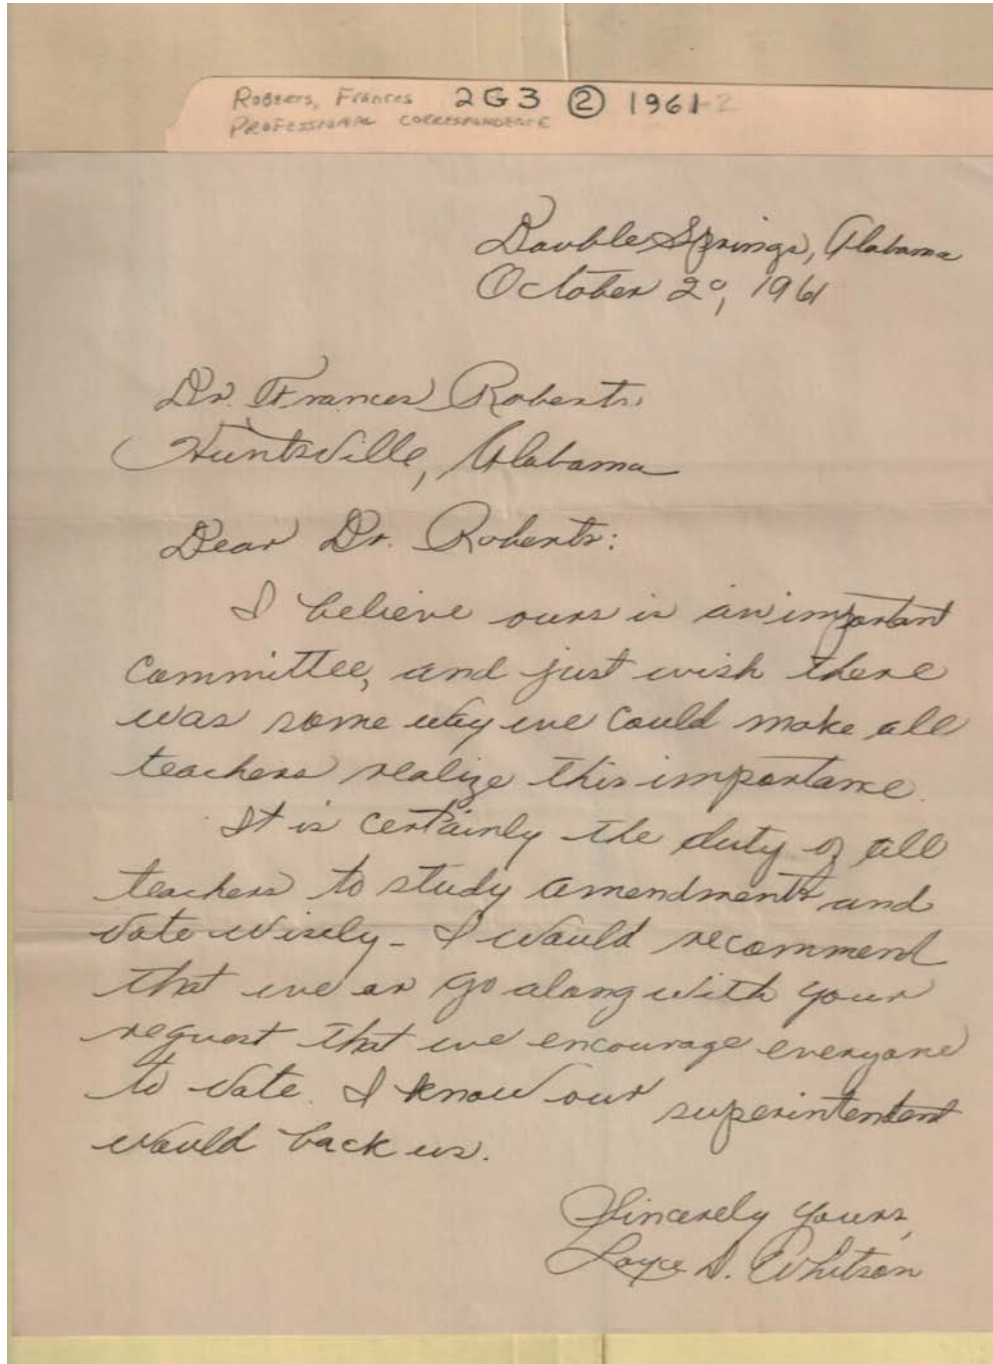 Roberts, Frances 2G3 ② 1961-2
PROFESSIONAL CORRESPONDENCE
Double Springs, Alabama
October 20, 1961
Dr. Frances Roberts
Huntsville, Alabama
Dear Dr. Roberts:
I believe ours is an important
committee, and just wish there
was some way we could make all
teachers realize this importance.
It is certainly the duty of all
teachers to study amendments and
vote wisely - I would recommend
that we go along with your
request that we encourage everyone
to vote. I know our superintendent
would back us.
Sincerely yours,
Loyce D. Whitson